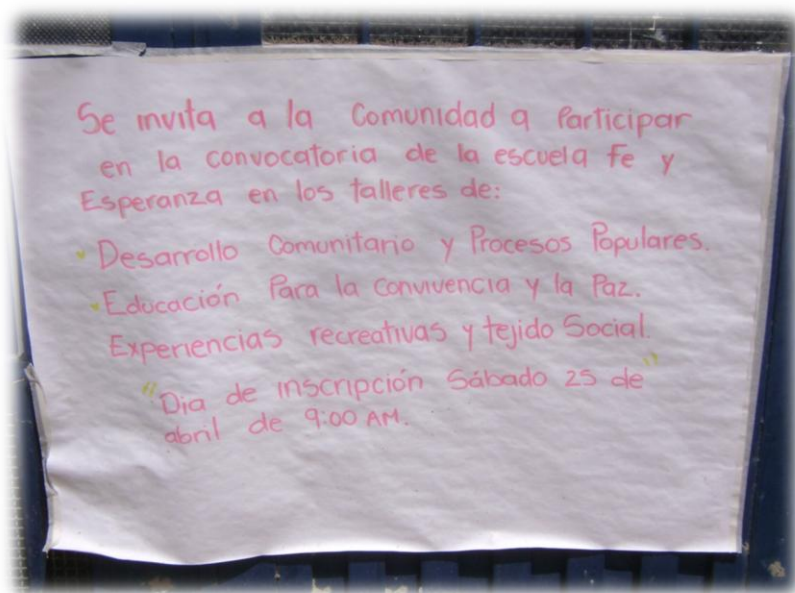 Se invita a la Comunidad a Participar
en la convocatoria de la escuela Fe y
Esperanza en los talleres de:
Desarrollo Comunitario y Procesos Populares.
Educación Para la convivencia y la Paz.
Experiencias recreativas y tejido Social.
"Dia de inscripción Sábado 25 de"
abril de 9:00 AM.